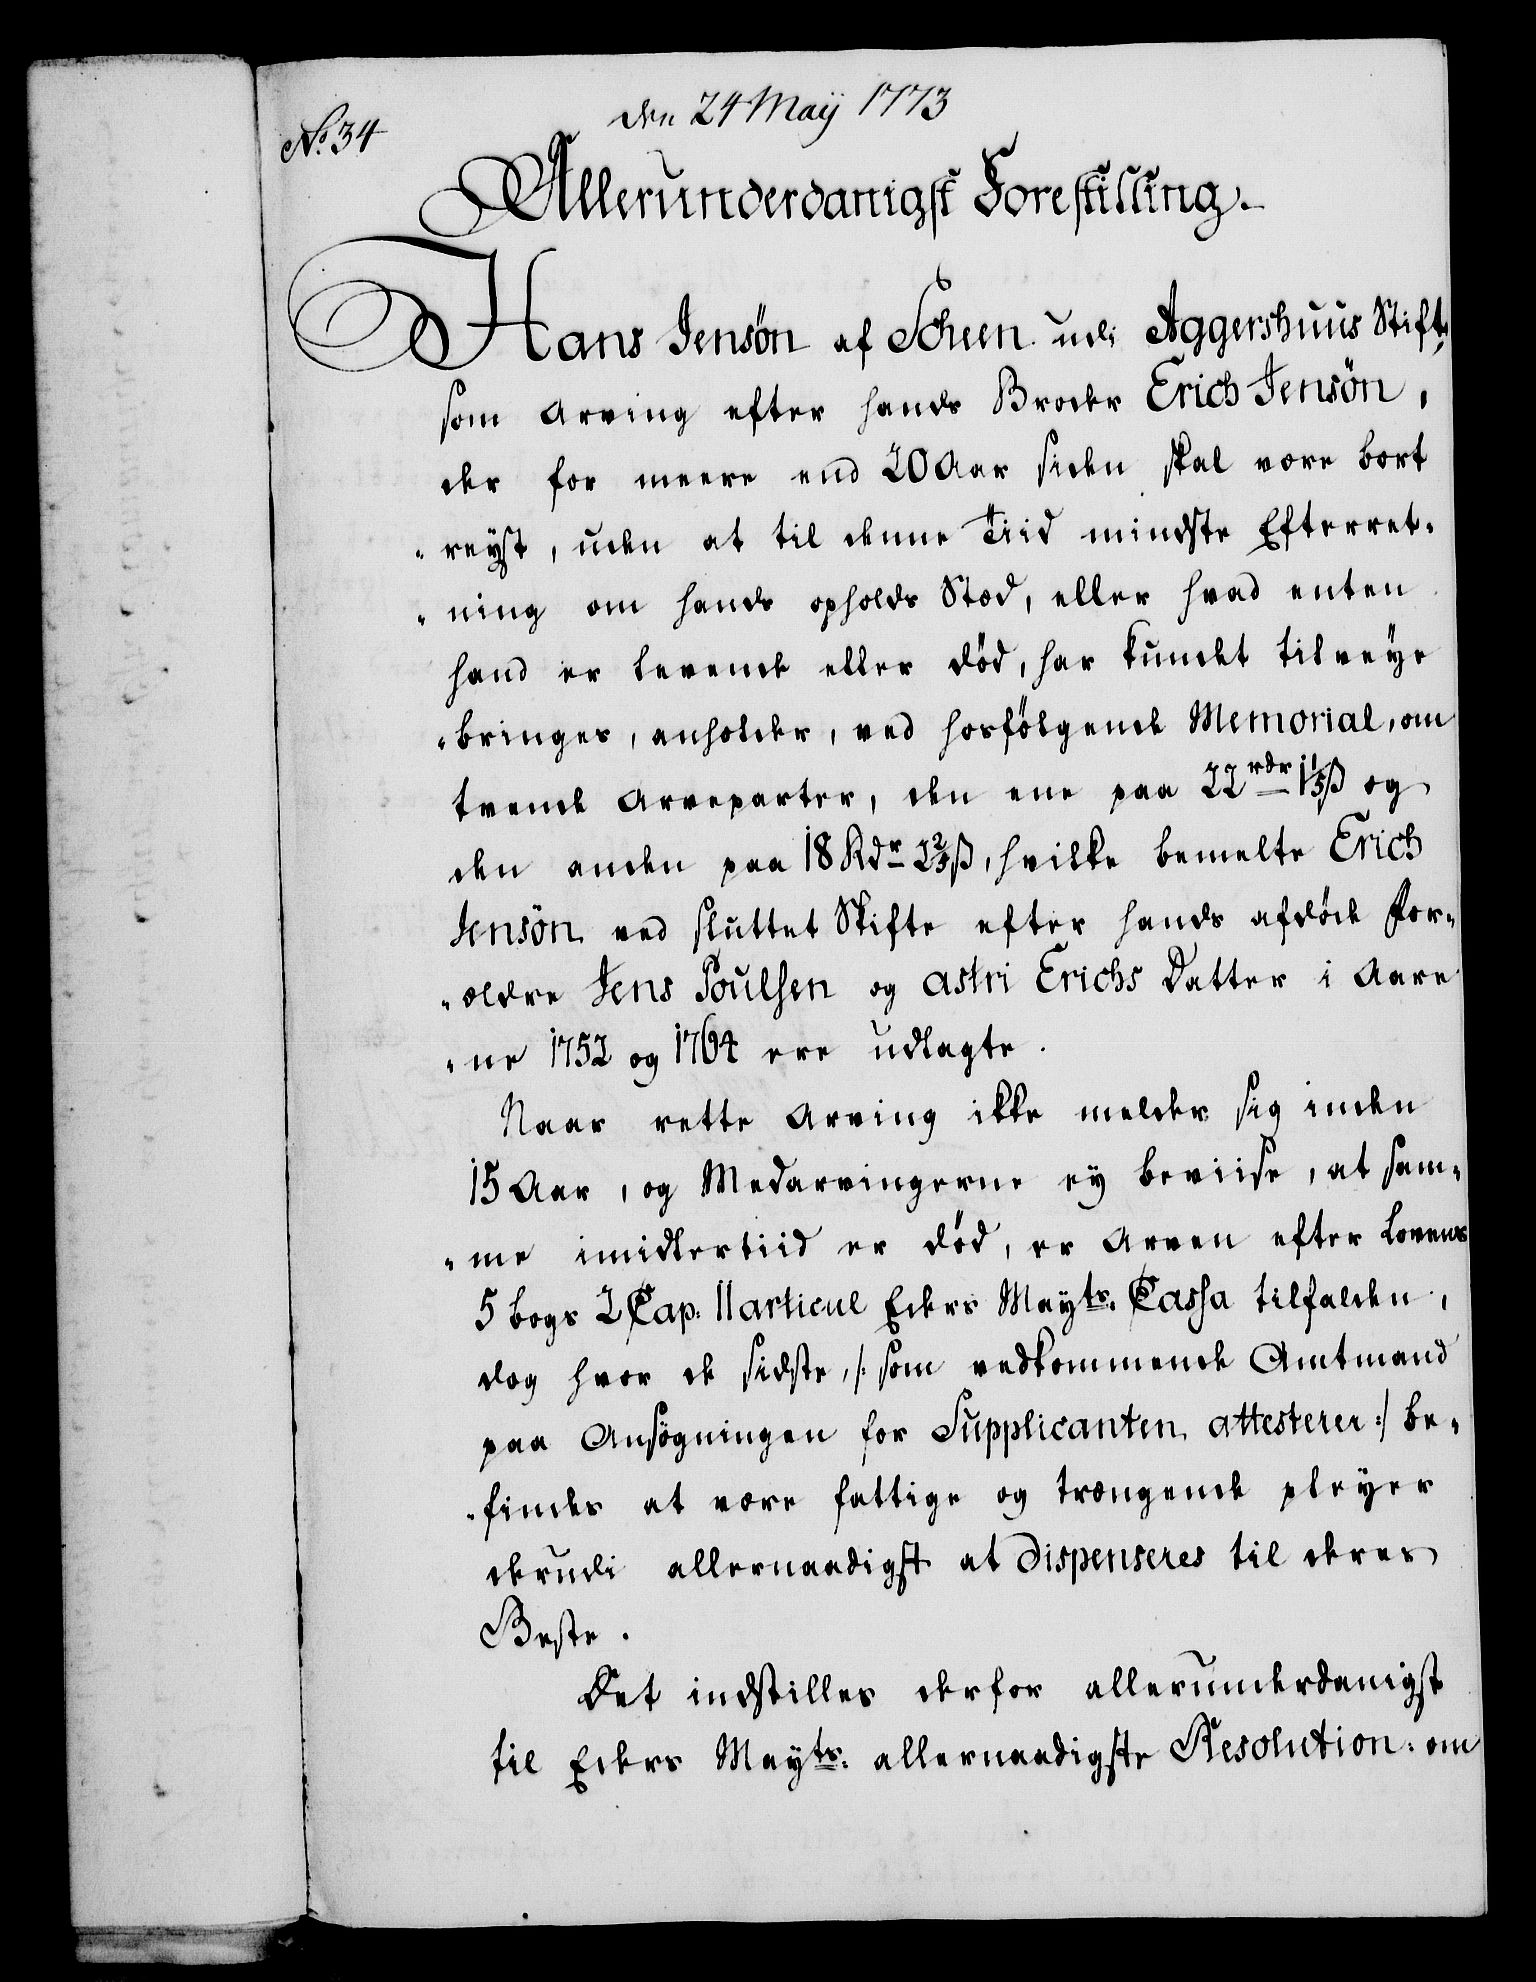 No. 34
den 24 Maÿ 1773
Allerunderdanigst Forestilling.
Hans Jensøn af Scheen udi Aggershuus Stift,
som Arving efter hands Broder Erich Jensøn,
der for meere end 20 Aar siden skal være bort
"reyst, uden at til denne Tiid mindste Efterret-
"ning om hands opholds Stæd, eller hvad enten
hand er levende eller død, har kundet tilveye
"bringes, anholder, ved hosfølgende Memorial, om
tvende Arveparter, den ene paa 22 rdr 1 1/5 ß og
den anden paa 18 Rdr 2 2/3 ß, hvilke bemelte Erich
Jensøn ved sluttet Skifte efter hands afdøde For-
"ældre Jens Poulsen og Astri Erichs Datter i Aare
"ne 1752 og 1764 ere udlagte.
Naar rette Arving ikke melder sig inden
15 Aar, og Medarvingerne ey beviise, at sam-
"me imidlertiid er død, er Arven efter Lovens
5 bogs 2 Cap: 11 articul Eders Mayts. Cassa tilfalden,
dog hvor de sidste, /: som vedkommende Amtmand
paa Ansøgningen for Supplicanten attesterer :/ be-
"findes at være fattige og trængende pleyer
derudi allernaadigst at dispenseres til deres
Beste.
Det indstilles derfor allerunderdanigst
til Eders Mayts. allernaadigste Resolution: om